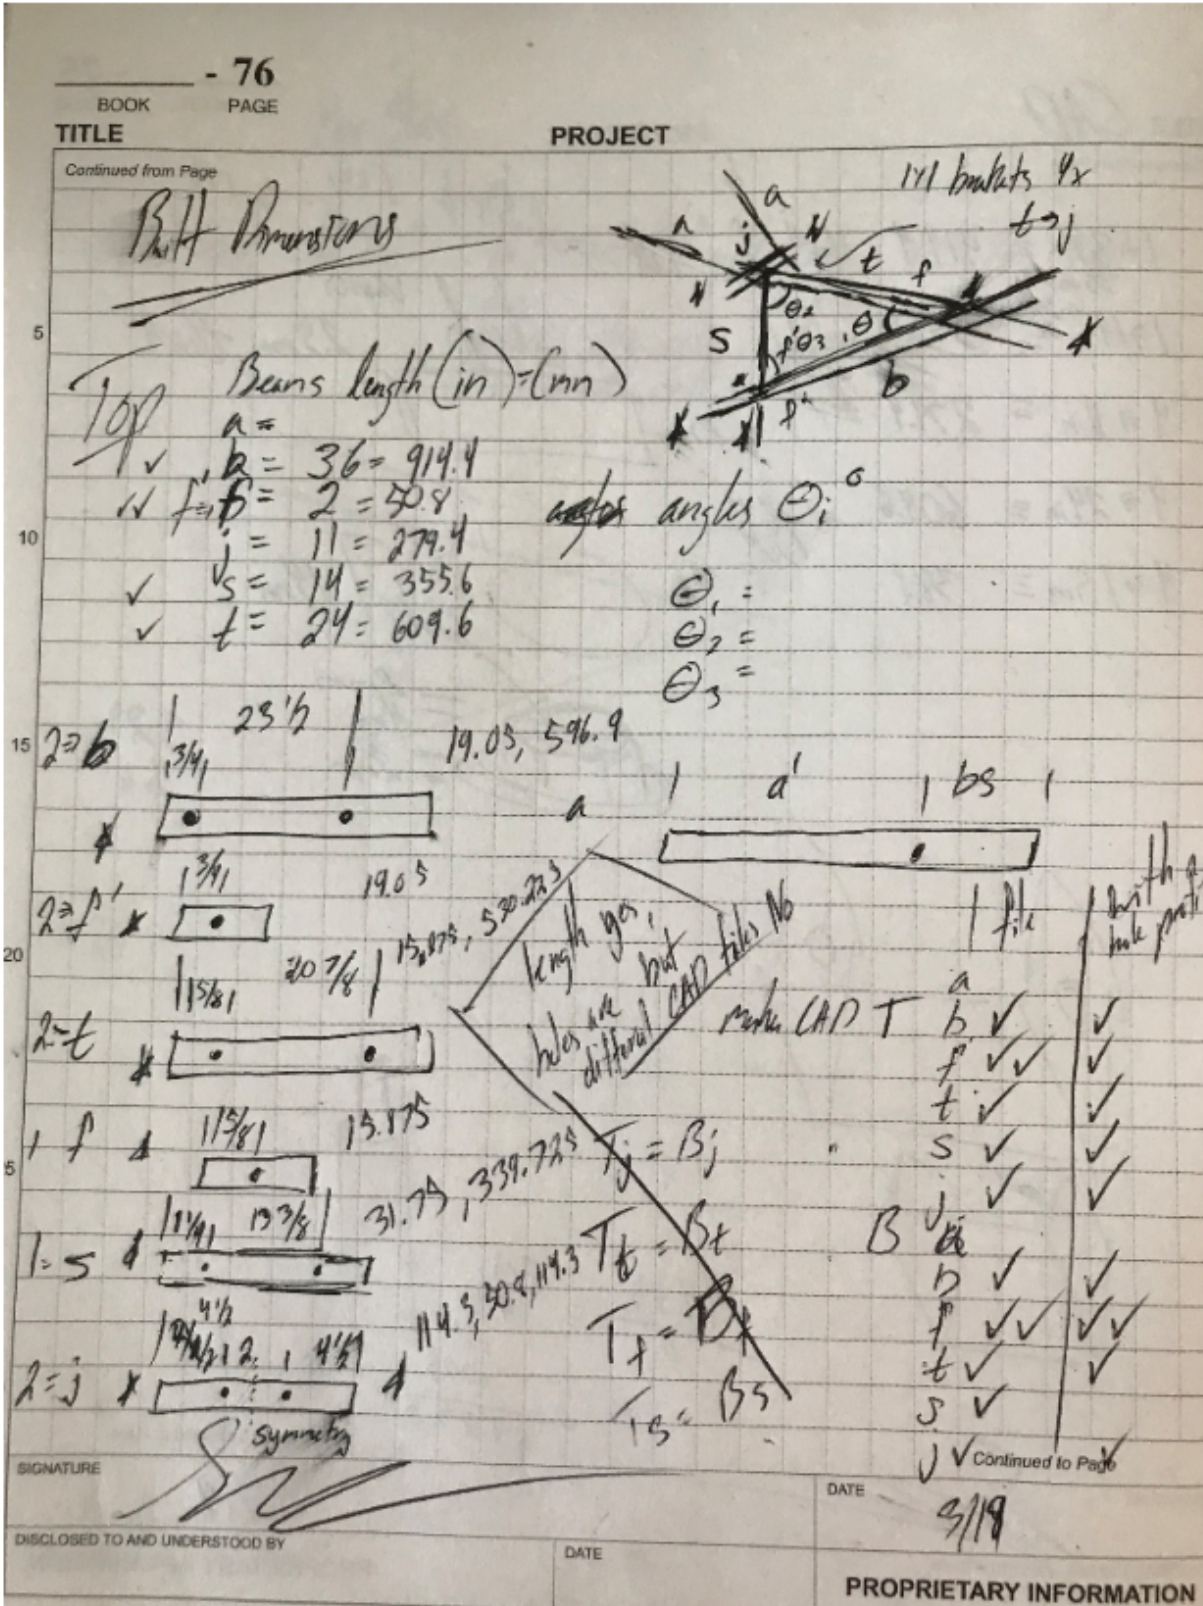 - 76
BOOK PAGE
TITLE PROJECT
Continued from Page
Built Dimensions
1x1 brackets 4x
t → j
a
a
j
t
f
θ2
θ
S
f'
θ3
b
f'
Top
Beams length (in) = (mm)
a =
b = 36 = 914.4
f', f = 2 = 50.8
j = 11 = 279.4
s = 14 = 355.6
t = 24 = 609.6
angles θi°
θ1 =
θ2 =
θ3 =
5
10
15
20
5
23 1/2
2 = b
3/4
19.05, 596.9
a
a' bs
3/4 19.05
2 = f'
15/8 20 7/8 15.875, 530.225
2 = t
length yes,
but
holes are
different CAD files No
file
with
hole
makes CAD T
a
b ✓ ✓
f ✓✓ ✓
t ✓ ✓
s ✓ ✓
j ✓ ✓
B a
b ✓ ✓
f ✓✓ ✓✓
t ✓ ✓
s ✓
j ✓ ✓
1 f
5/8 15.875
Tj = Bj
1 1/4 13 3/8 31.75, 339.725
1 = s
Tt = Bt
4 1/2
2 4 1/2
114.3, 50.8, 114.3
Tf = Bf
2 = j
Ts = Bs
symmetry
Continued to Page
SIGNATURE
DATE
3/18
DISCLOSED TO AND UNDERSTOOD BY
DATE
PROPRIETARY INFORMATION